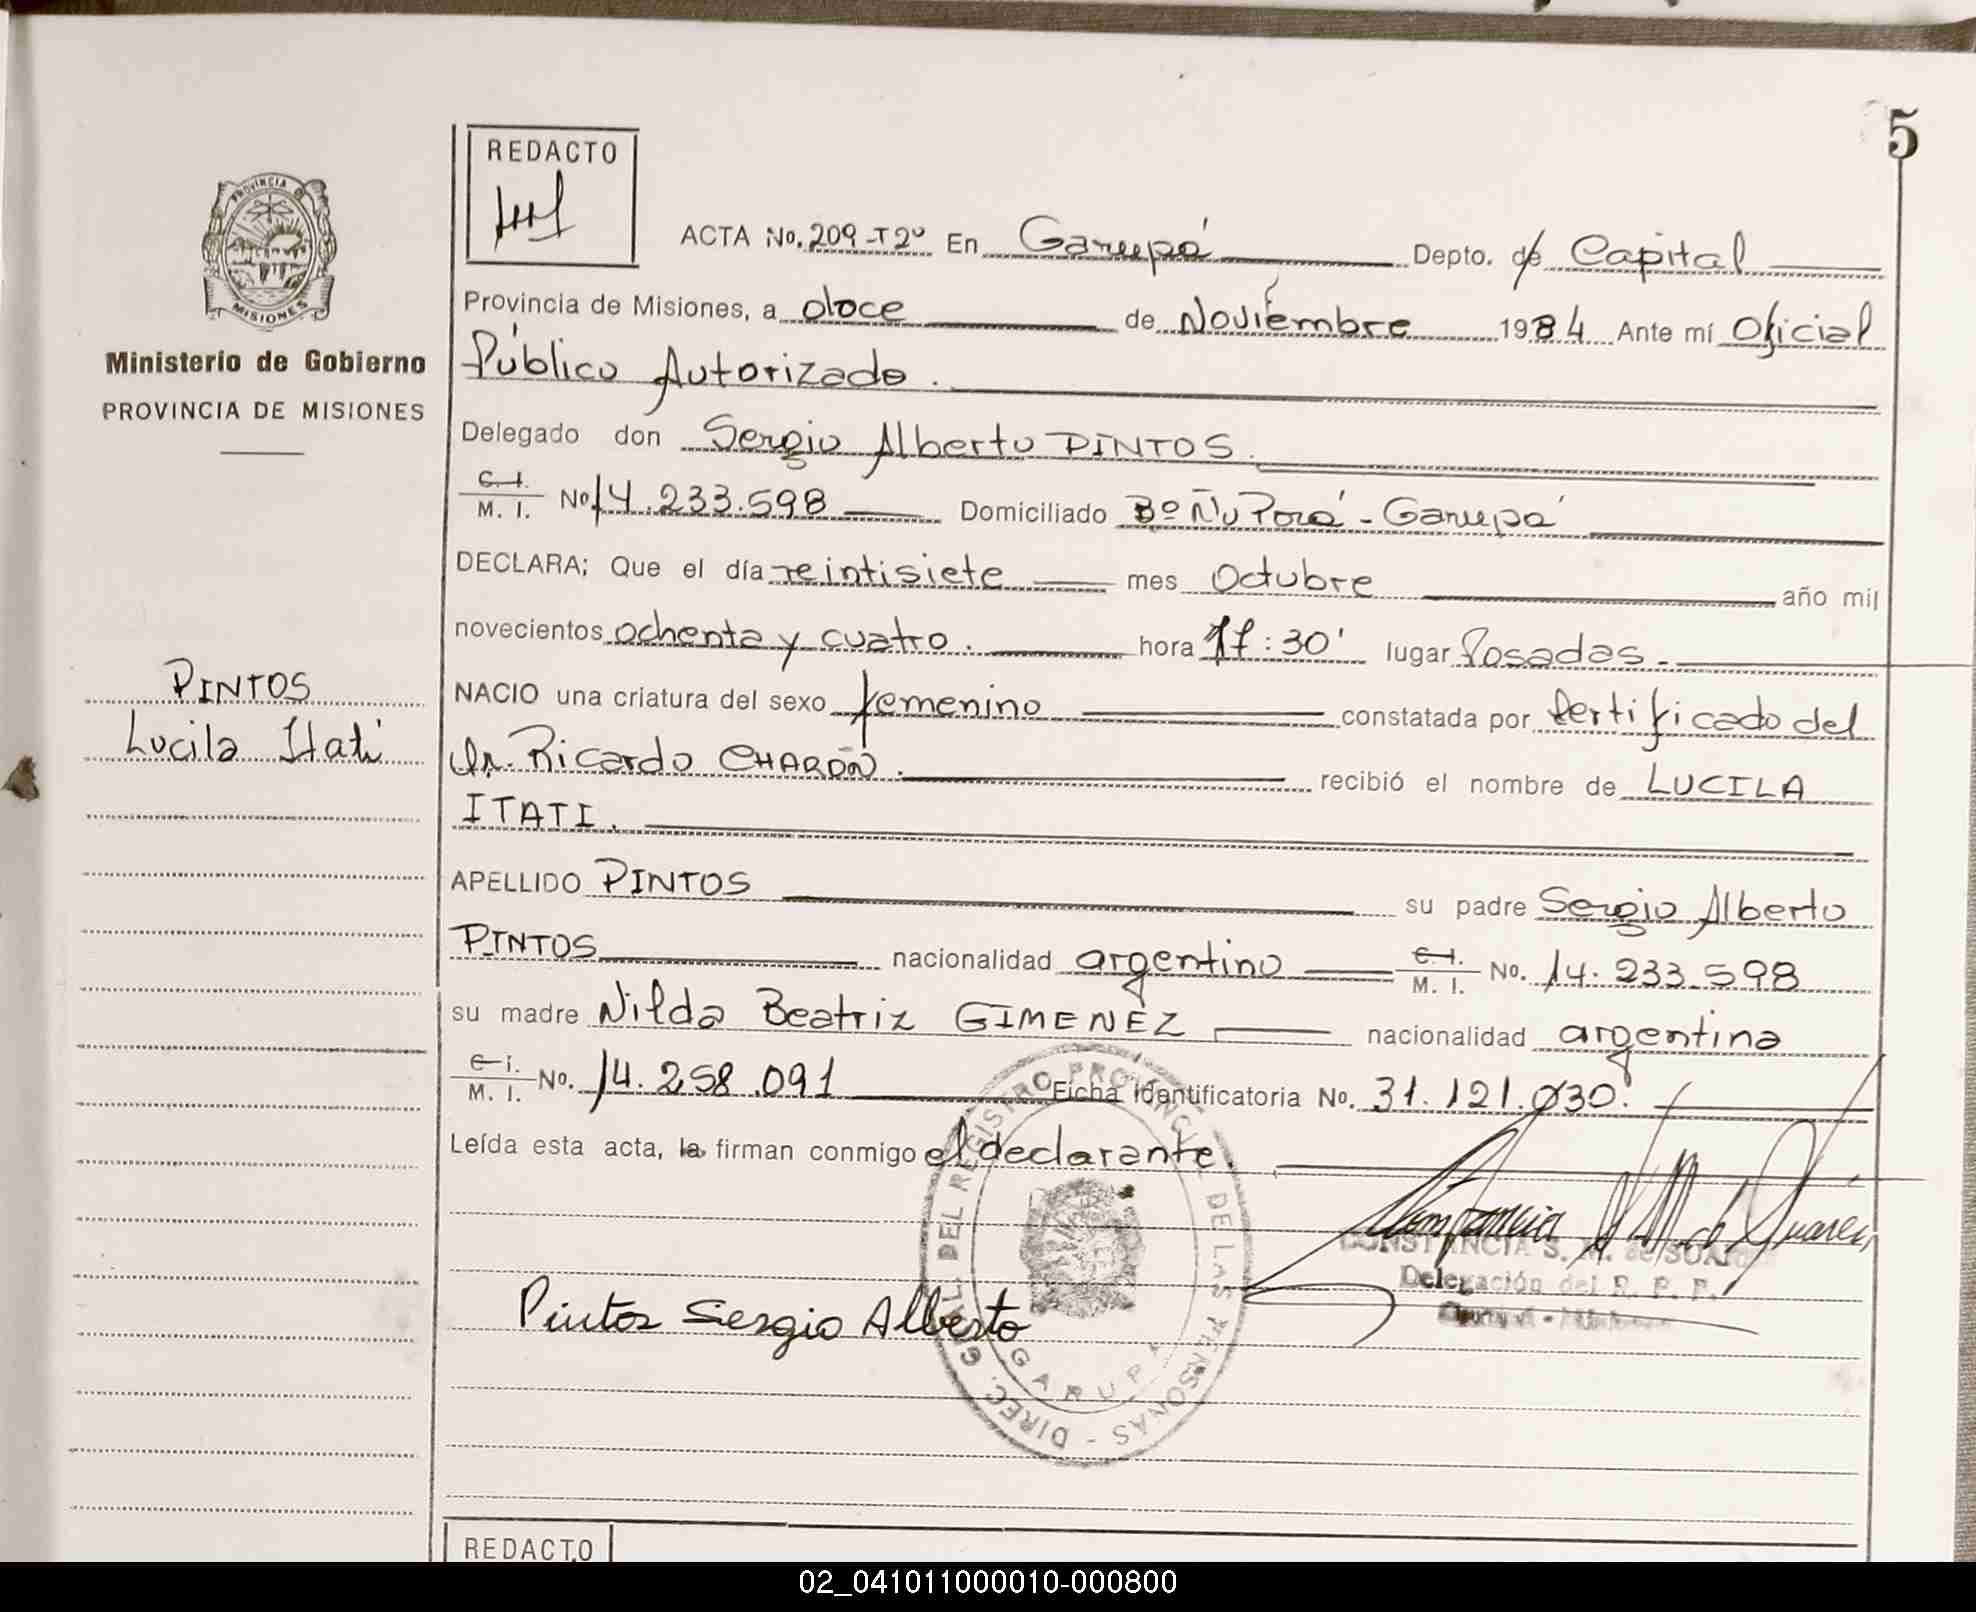 5
REDACTO
PROVINCIA D
MISIONES
ACTA No. 209-T2º En Garupá Depto. de Capital
Provincia de Misiones, a doce de Noviembre 1984 Ante mí Oficial
Ministerio de Gobierno
Público Autorizado.
PROVINCIA DE MISIONES
Delegado don Sergio Alberto PINTOS.
C. I.
M. I. No 14.233.598 Domiciliado Bº Ñu Porá - Garupá
DECLARA; Que el día veintisiete mes Octubre año mil
novecientos ochenta y cuatro. hora 17:30' lugar Posadas.-
PINTOS
Lucila Itatí
NACIO una criatura del sexo femenino constatada por Certificado del
Dr. Ricardo CHARÓN. recibió el nombre de LUCILA
ITATI.
APELLIDO PINTOS su padre Sergio Alberto
PINTOS nacionalidad argentino C. I. M. I. No. 14.233.598
su madre Nilda Beatriz GIMENEZ nacionalidad argentina
C. I.
M. I. No. 14.258.091 Ficha identificatoria No. 31.121.030.
Leída esta acta, la firman conmigo el declarante.
DIREC. GRAL. DEL REGISTRO PROVINCIAL DE LAS PERSONAS -
GARUPA
CONSTANCIA S. M. de SUAREZ
Delegación del R. P. P.
Pintos Sergio Alberto
REDACTO
02_041011000010-000800